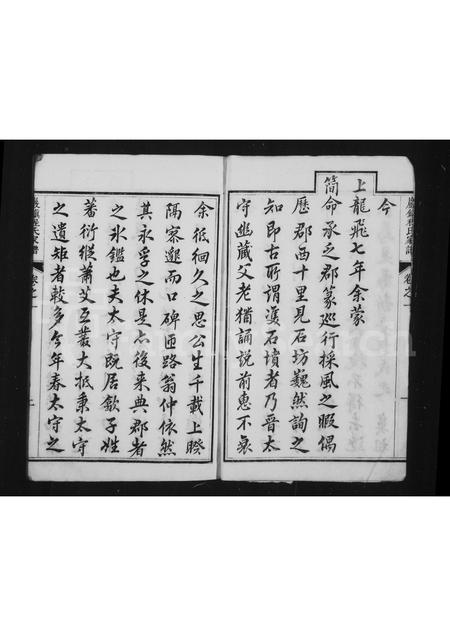 今
上龍飛七年余蒙
簡命承乏郡篆巡行採風之暇偶
歷郡西十里見石坊巍然詢之
知即古所謂雙石墳者乃晉太
守幽藏父老猶誦說前惠不衰
余低徊久之思公生千載上暌
隔寥邈而口碑匝路翁仲依然
其永孚之休是亦後來典郡者
之氷鑑也夫太守既居歙子姓
蕃衍縱蕭艾互叢大抵秉太守
之遺矩者較多今年春太守之